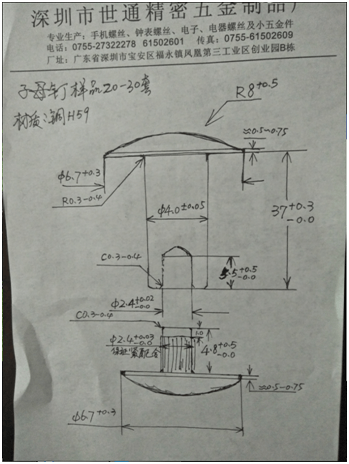 深圳市世通精密五金制品厂
专业生产：手机螺丝、钟表螺丝、电子、电器螺丝及小五金件
电话：0755-27322278 61502601 传真：0755-61502609
厂址：广东省深圳市宝安区福永镇凤凰第三工业区创业园B栋
子母钉样品20-30套
材质：铜H59
R8+0.5
≈0.5-0.75
Φ6.7+0.3
R0.3-0.4
Φ4.0±0.05
37+0.3-0.0
C0.3-0.4
5.5+0.5-0.0
Φ2.4+0.02-0.0
C0.3-0.4
1.0
Φ2.4+0.03-0.0
紧配合
4.8+0.5-0.0
≈0.5-0.75
Φ6.7+0.3